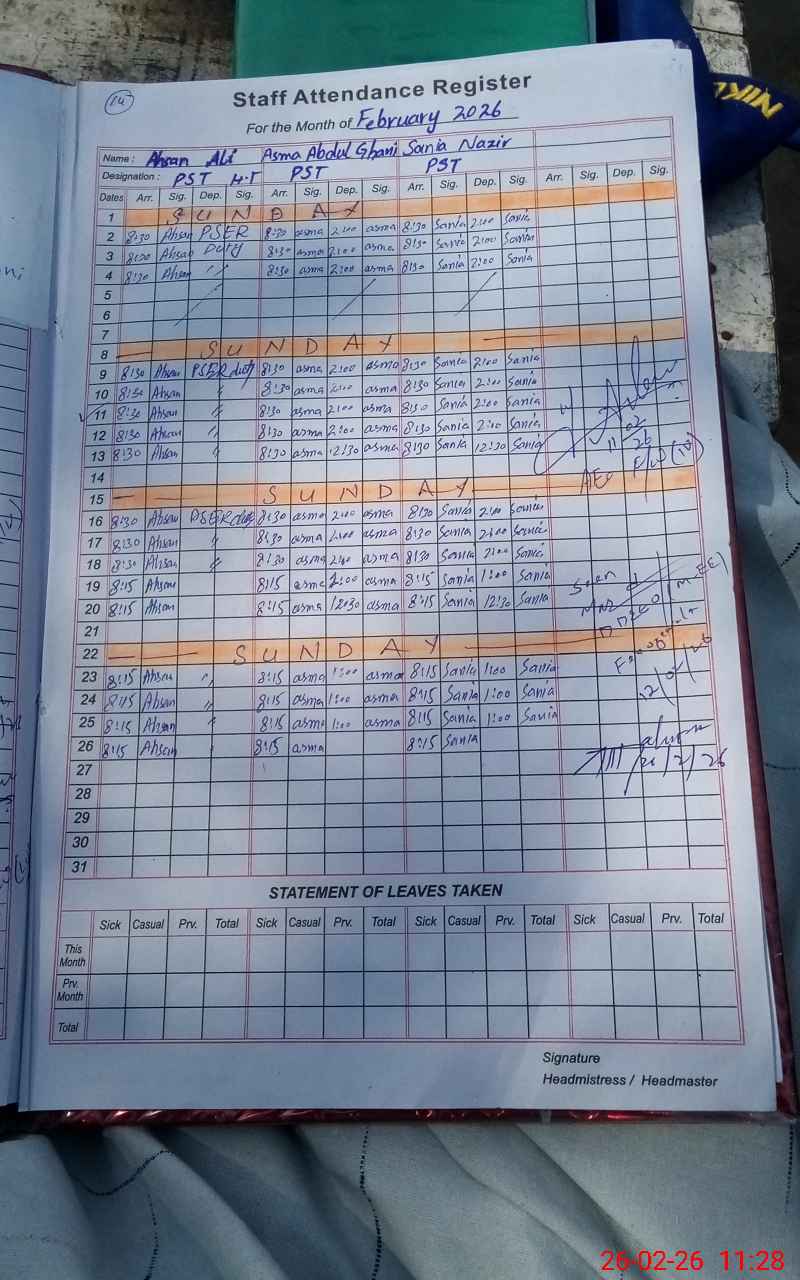 14
Staff Attendance Register
For the Month of February 2026
Name : Ahsan Ali Asma Abdul Ghani Sania Nazir
Designation : PST H.T PST PST
Dates Arr. Sig. Dep. Sig. Arr. Sig. Dep. Sig. Arr. Sig. Dep. Sig. Arr. Sig. Dep. Sig.
1 SUNDAY
2 8:30 Ahsan PSER 8:30 asma 2:00 asma 8:30 Sania 2:00 Sania
3 8:30 Ahsan Duty 8:30 asma 2:00 asma 8:30 Sania 2:00 Sania
4 8:30 Ahsan " 8:30 asma 2:00 asma 8:30 Sania 2:00 Sania
5
6
7
8 SUNDAY
9 8:30 Ahsan PSER duty 8:30 asma 2:00 asma 8:30 Sania 2:00 Sania
10 8:30 Ahsan " 8:30 asma 2:00 asma 8:30 Sania 2:00 Sania
11 8:30 Ahsan " 8:30 asma 2:00 asma 8:30 Sania 2:00 Sania
12 8:30 Ahsan " 8:30 asma 2:00 asma 8:30 Sania 2:00 Sania
11/02/26
13 8:30 Ahsan " 8:30 asma 12:30 asma 8:30 Sania 12:30 Sania
14
AEO
15 SUNDAY
16 8:30 Ahsan PSER duty 8:30 asma 2:00 asma 8:30 Sania 2:00 Sania
17 8:30 Ahsan " 8:30 asma 2:00 asma 8:30 Sania 2:00 Sania
18 8:30 Ahsan " 8:30 asma 2:00 asma 8:30 Sania 2:00 Sania
19 8:15 Ahsan 8:15 asma 1:00 asma 8:15 Sania 1:00 Sania
Seen
20 8:15 Ahsan 8:15 asma 12:30 asma 8:15 Sania 12:30 Sania
21
22 SUNDAY
23 8:15 Ahsan " 8:15 asma 1:00 asma 8:15 Sania 1:00 Sania
24 8:15 Ahsan " 8:15 asma 1:00 asma 8:15 Sania 1:00 Sania
25 8:15 Ahsan " 8:15 asma 1:00 asma 8:15 Sania 1:00 Sania
26 8:15 Ahsan 8:15 asma 8:15 Sania
27 26/2/26
28
29
30
31
STATEMENT OF LEAVES TAKEN
Sick Casual Prv. Total Sick Casual Prv. Total Sick Casual Prv. Total Sick Casual Prv. Total
This
Month
Prv.
Month
Total
Signature
Headmistress / Headmaster
NIKE
26-02-26 11:28